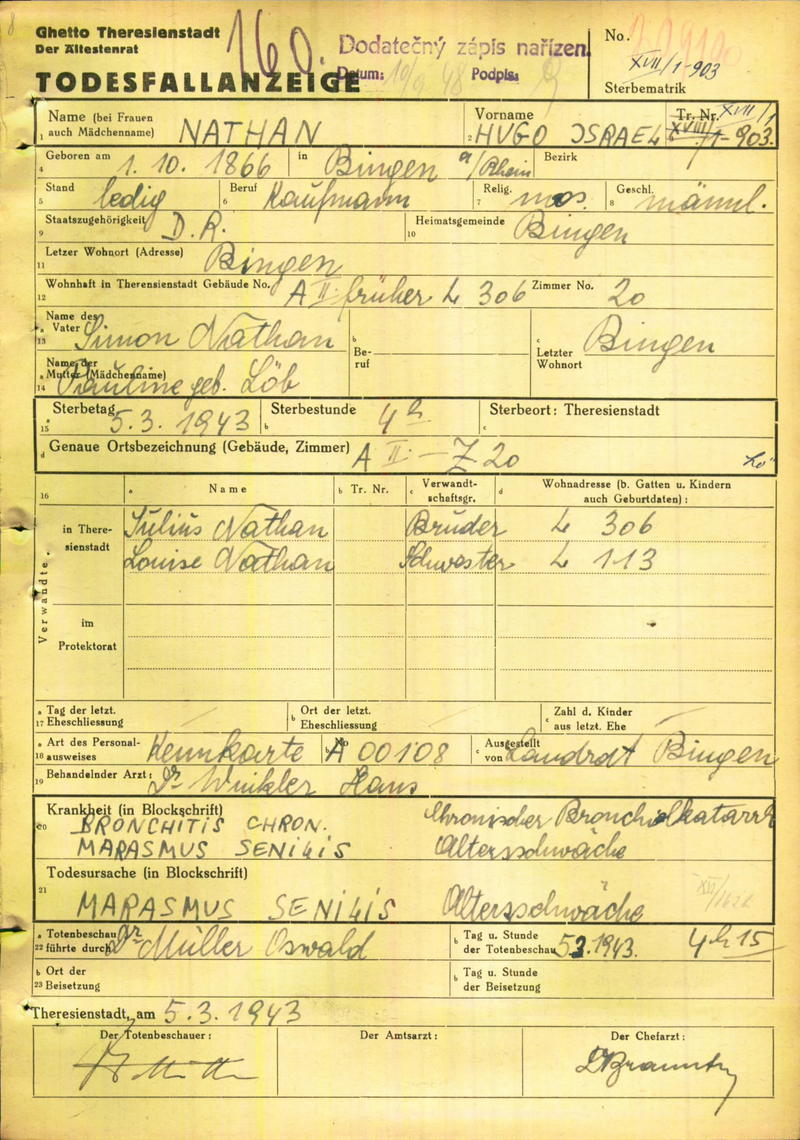 Ghetto Theresienstadt
Der Ältestenrat
TODESFALLANZEIGE
160.
Dodatečný zápis nařízen
Datum: 10/9 48 Podpis:
No.
XVII/1-903
Sterbematrik
Name (bei Frauen auch Mädchenname) NATHAN
1
Vorname HUGO ISRAEL
2
Tr. Nr. XVII/1
XVIII/1-903.
4 Geboren am 1. 10. 1866 in Bingen a/Rhein Bezirk
5 Stand ledig 6 Beruf Kaufmann 7 Relig. mos. 8 Geschl. männl.
9 Staatszugehörigkeit D. R. 10 Heimatsgemeinde Bingen
11 Letzer Wohnort (Adresse) Bingen
12 Wohnhaft in Theresienstadt Gebäude No. A II früher L 306 Zimmer No. 20
13 a Name des Vater Simon Nathan b Beruf c Letzter Wohnort Bingen
14 a Name der Mutter (Mädchenname) Pauline geb. Löb
15 a Sterbetag 5. 3. 1943 b Sterbestunde 4 h c Sterbeort: Theresienstadt
d Genaue Ortsbezeichnung (Gebäude, Zimmer) A II - Z 20
16 a Name b Tr. Nr. c Verwandtschaftsgr. d Wohnadresse (b. Gatten u. Kindern auch Geburtdaten):
Verwandte
in Theresienstadt
Julius Nathan Bruder L 306
Louise Nathan Schwester L 113
im Protektorat
17 a Tag der letzt. Eheschliessung b Ort der letzt. Eheschliessung c Zahl d. Kinder aus letzt. Ehe
18 a Art des Personalausweises Kennkarte b No A 00108 c Ausgestellt von Landrat Bingen
19 Behandelnder Arzt: Dr Winkler Hans
20 Krankheit (in Blockschrift)
BRONCHITIS CHRON. Chronischer Bronchialkatarrh
MARASMUS SENILIS Altersschwäche
21 Todesursache (in Blockschrift)
MARASMUS SENILIS Altersschwäche
22 a Totenbeschau führte durch Dr Müller Oswald b Tag u. Stunde der Totenbeschau 5.3.1943. 4 h 15
23 b Ort der Beisetzung b Tag u. Stunde der Beisetzung
Theresienstadt, am 5. 3. 1943
Der Totenbeschauer: Der Amtsarzt: Der Chefarzt: